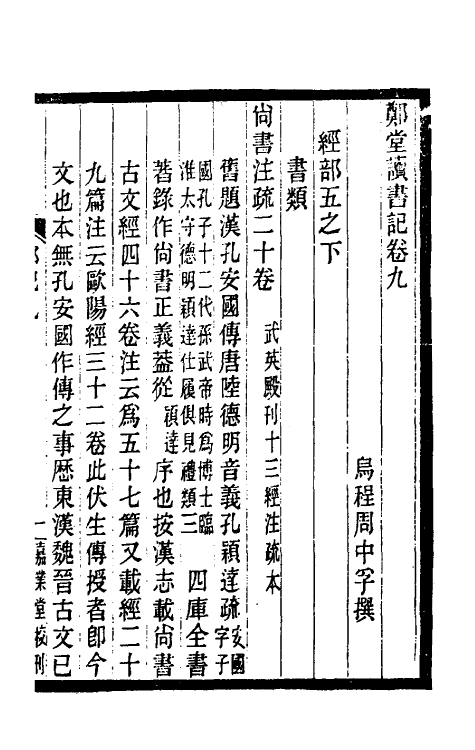 鄭堂讀書記卷九
烏程周中孚撰
經部五之下
書類
尚書注疏二十卷 武英殿刊十三經注疏本
舊題漢孔安國傳唐陸德明音義孔穎達疏安國字子
國孔子十二代孫武帝時爲博士臨
淮太守德明穎達仕履俱見禮類三 四庫全書
著錄作尚書正義葢從穎達序也按漢志載尚書
古文經四十六卷注云爲五十七篇又載經二十
九篇注云歐陽經三十二卷此伏生傳授者卽今
文也本無孔安國作傳之事歷東漢魏晉古文已
一 嘉業堂校刊